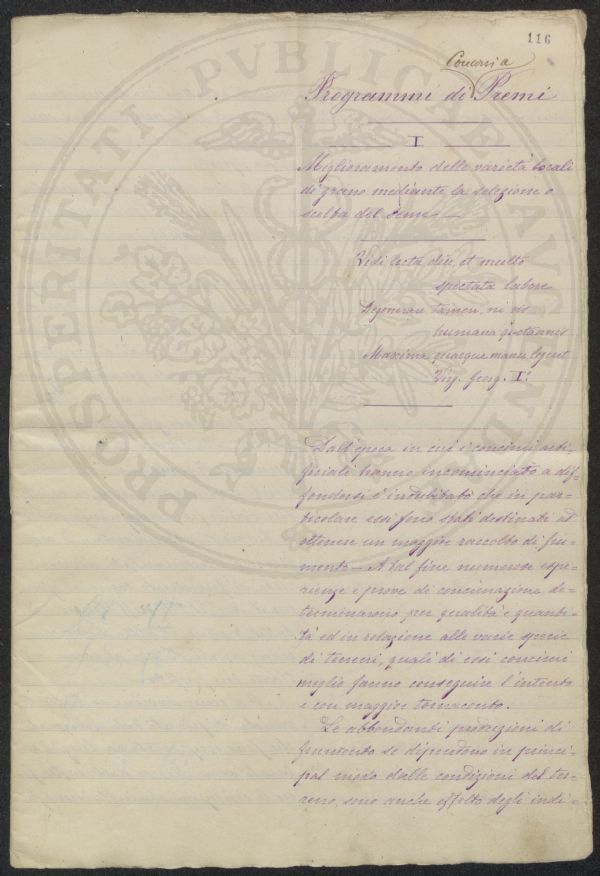 116
Concorsi a
Programmi di Premi
I
Miglioramento delle varietà locali
di grano mediante la selezione o
scelta del seme
Vidi lecta diu, et multo
spectata labore
Degenerare tamen, ni vis
humana quotannis
Maxima quaeque manu legeret
Virg. Georg. I.
Dall'epoca in cui i concimi arti-
ficiali hanno incominciato a dif-
fondersi è indubitato che in par-
ticolare essi sono stati destinati ad
ottenere un maggior raccolto di fru-
mento - A tal fine numerose espe-
rienze e prove di concimazione de-
terminarono per qualità e quanti-
tà ed in relazione alle varie specie
di terreni, quali di essi concimi
meglio fanno conseguire l'intento
e con maggior tornaconto.
Le abbondanti produzioni di
frumento se dipendono in princi-
pal modo dalle condizioni del ter-
reno, sono anche effetto degli indi-
PROSPERITATI PVBLICAE AVGENDAE